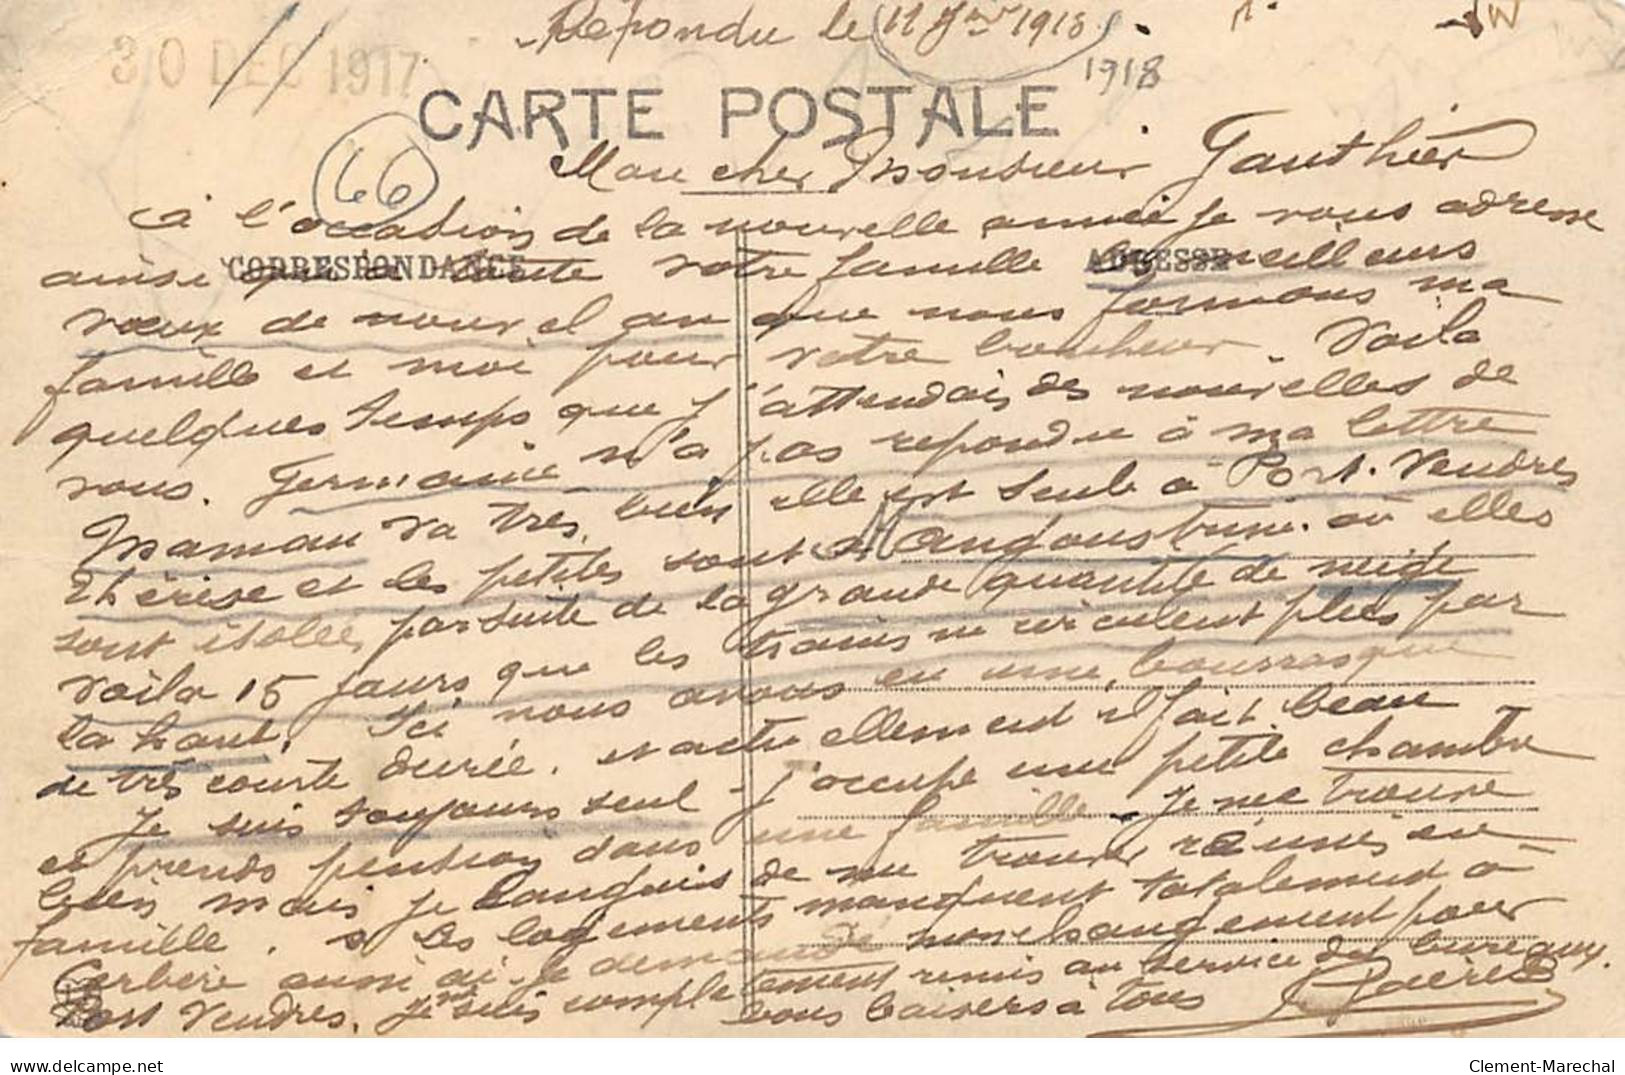 Répondu le 11 Jer 1918
30 DEC 1917
1918
CARTE POSTALE
66
Mon cher Monsieur Gauthier
à l'occasion de la nouvelle année je vous adresse
CORRESPONDANCE
ADRESSE
ainsi que à toute votre famille les meilleurs
vœux de nouvel an que nous formons ma
famille et moi pour votre bonheur. Voila
quelques temps que j'attendais des nouvelles de
vous. Germaine n'a pas repondu à ma lettre
Maman va très bien elle est seule à Port-Vendres
Thérèse et les petites sont à Angoustrine où elles
sont isolées par suite de la grande quantité de neige
Voila 15 jours que les trains ne circulent plus par
la haut. Ici nous avons eu une bourrasque
de très courte durée. et actuellement il fait beau
Je suis toujours seul j'occupe une petite chambre
et prends pension dans une famille. Je me trouve
bien mais je languis de me trouver réunis en
famille. les logements manquent totalement à
Cerbère aussi ai-je demandé mon changement pour
Port Vendres. Je suis complètement remis au service des bureaux.
vous baisers à tous
Clement-Marechal